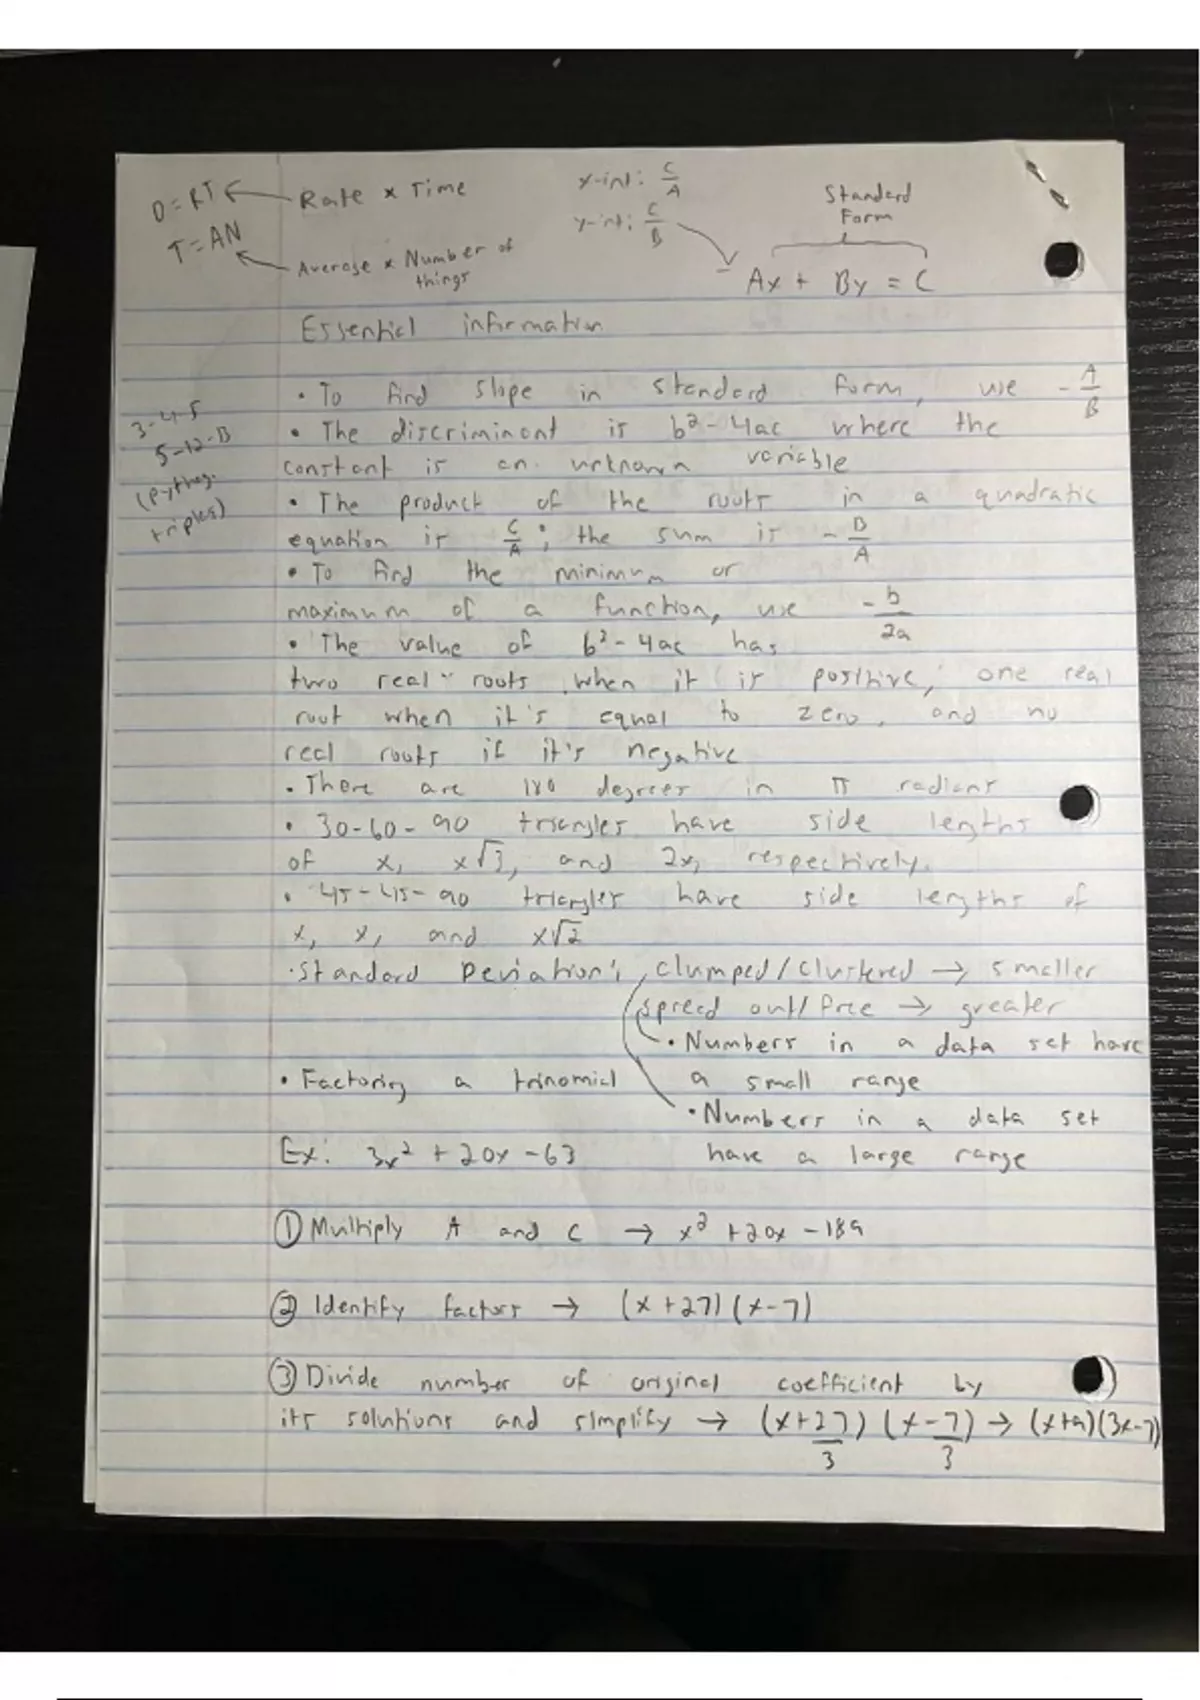 D = RT ← Rate × Time
T = AN
Average × Number of
things
x-int: C/A
y-int: C/B
Standard
Form
Ax + By = C
Essential information
• To find slope in standard form, use -A/B
3-4-5
5-12-13
(pythag.
triples)
• The discriminant is b²-4ac where the
constant is an unknown variable
• The product of the roots in a quadratic
equation is C/A; the sum is -B/A
• To find the minimum or
maximum of a function, use -b/2a
• The value of b²-4ac has
two real roots when it is positive, one real
root when it's equal to zero, and no
real roots if it's negative
• There are 180 degrees in π radians
• 30-60-90 triangles have side lengths
of x, x√3, and 2x, respectively.
• 45-45-90 triangles have side lengths of
x, x, and x√2
• Standard Deviation: clumped/clustered → smaller
spread out/free → greater
• Numbers in a data set have
a small range
• Numbers in a data set
have a large range
• Factoring a trinomial
Ex: 3x² + 20x - 63
① Multiply A and C → x² + 20x - 189
② Identify factors → (x+27)(x-7)
③ Divide number of original coefficient by
its solutions and simplify → (x+27/3)(x-7/3) → (x+9)(3x-7)